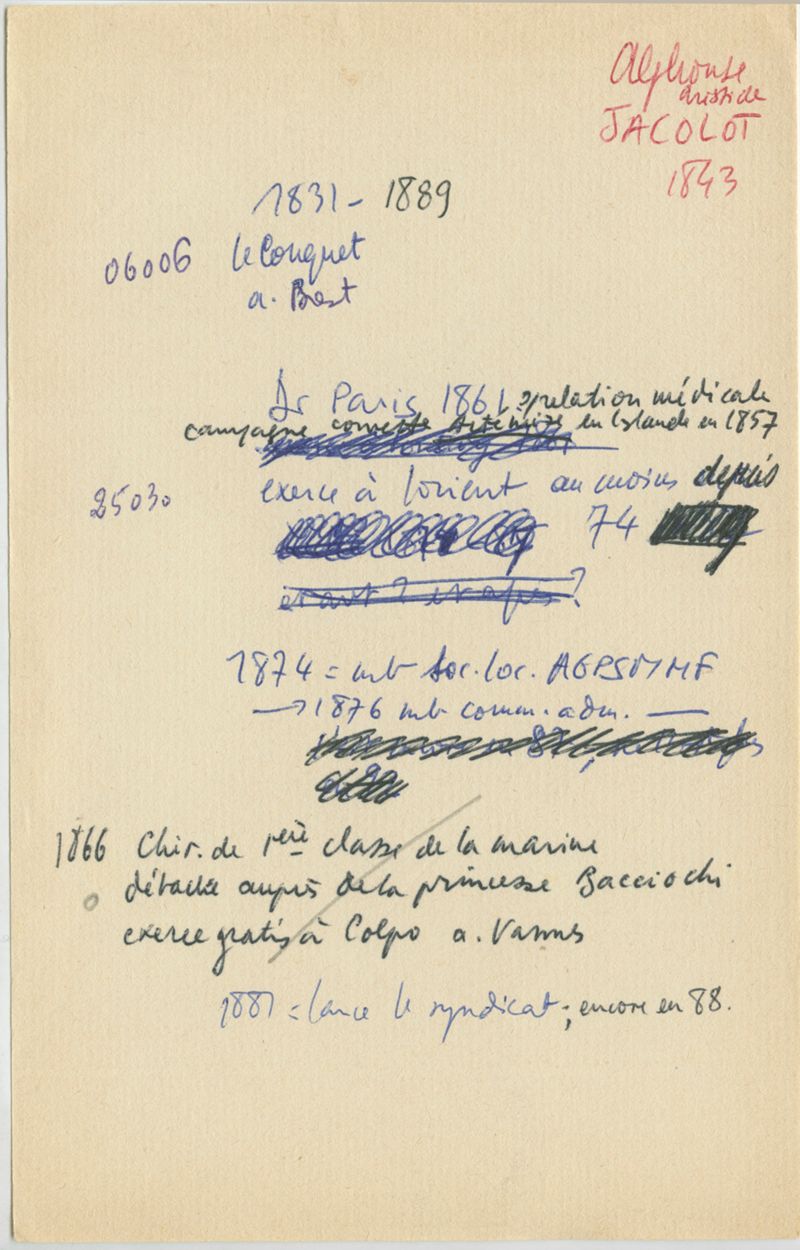 Alphonse
Aristide
JACOLOT
1843
1831 - 1889
06006 le Conquet
a. Brest
Dr Paris 1861. relation médicale
campagne corvette Artémise en Islande en 1857
25030 exerce à Lorient au moins depuis
74
avant ? et après ?
1874 = mb Soc. loc. AGPSMMF
→ 1876 mb comm. adm. —
1866 Chir. de 1ère classe de la marine
détaché auprès de la princesse Bacciochi
exerce gratis à Colpo a. Vannes
1881 = lance le syndicat ; encore en 88.